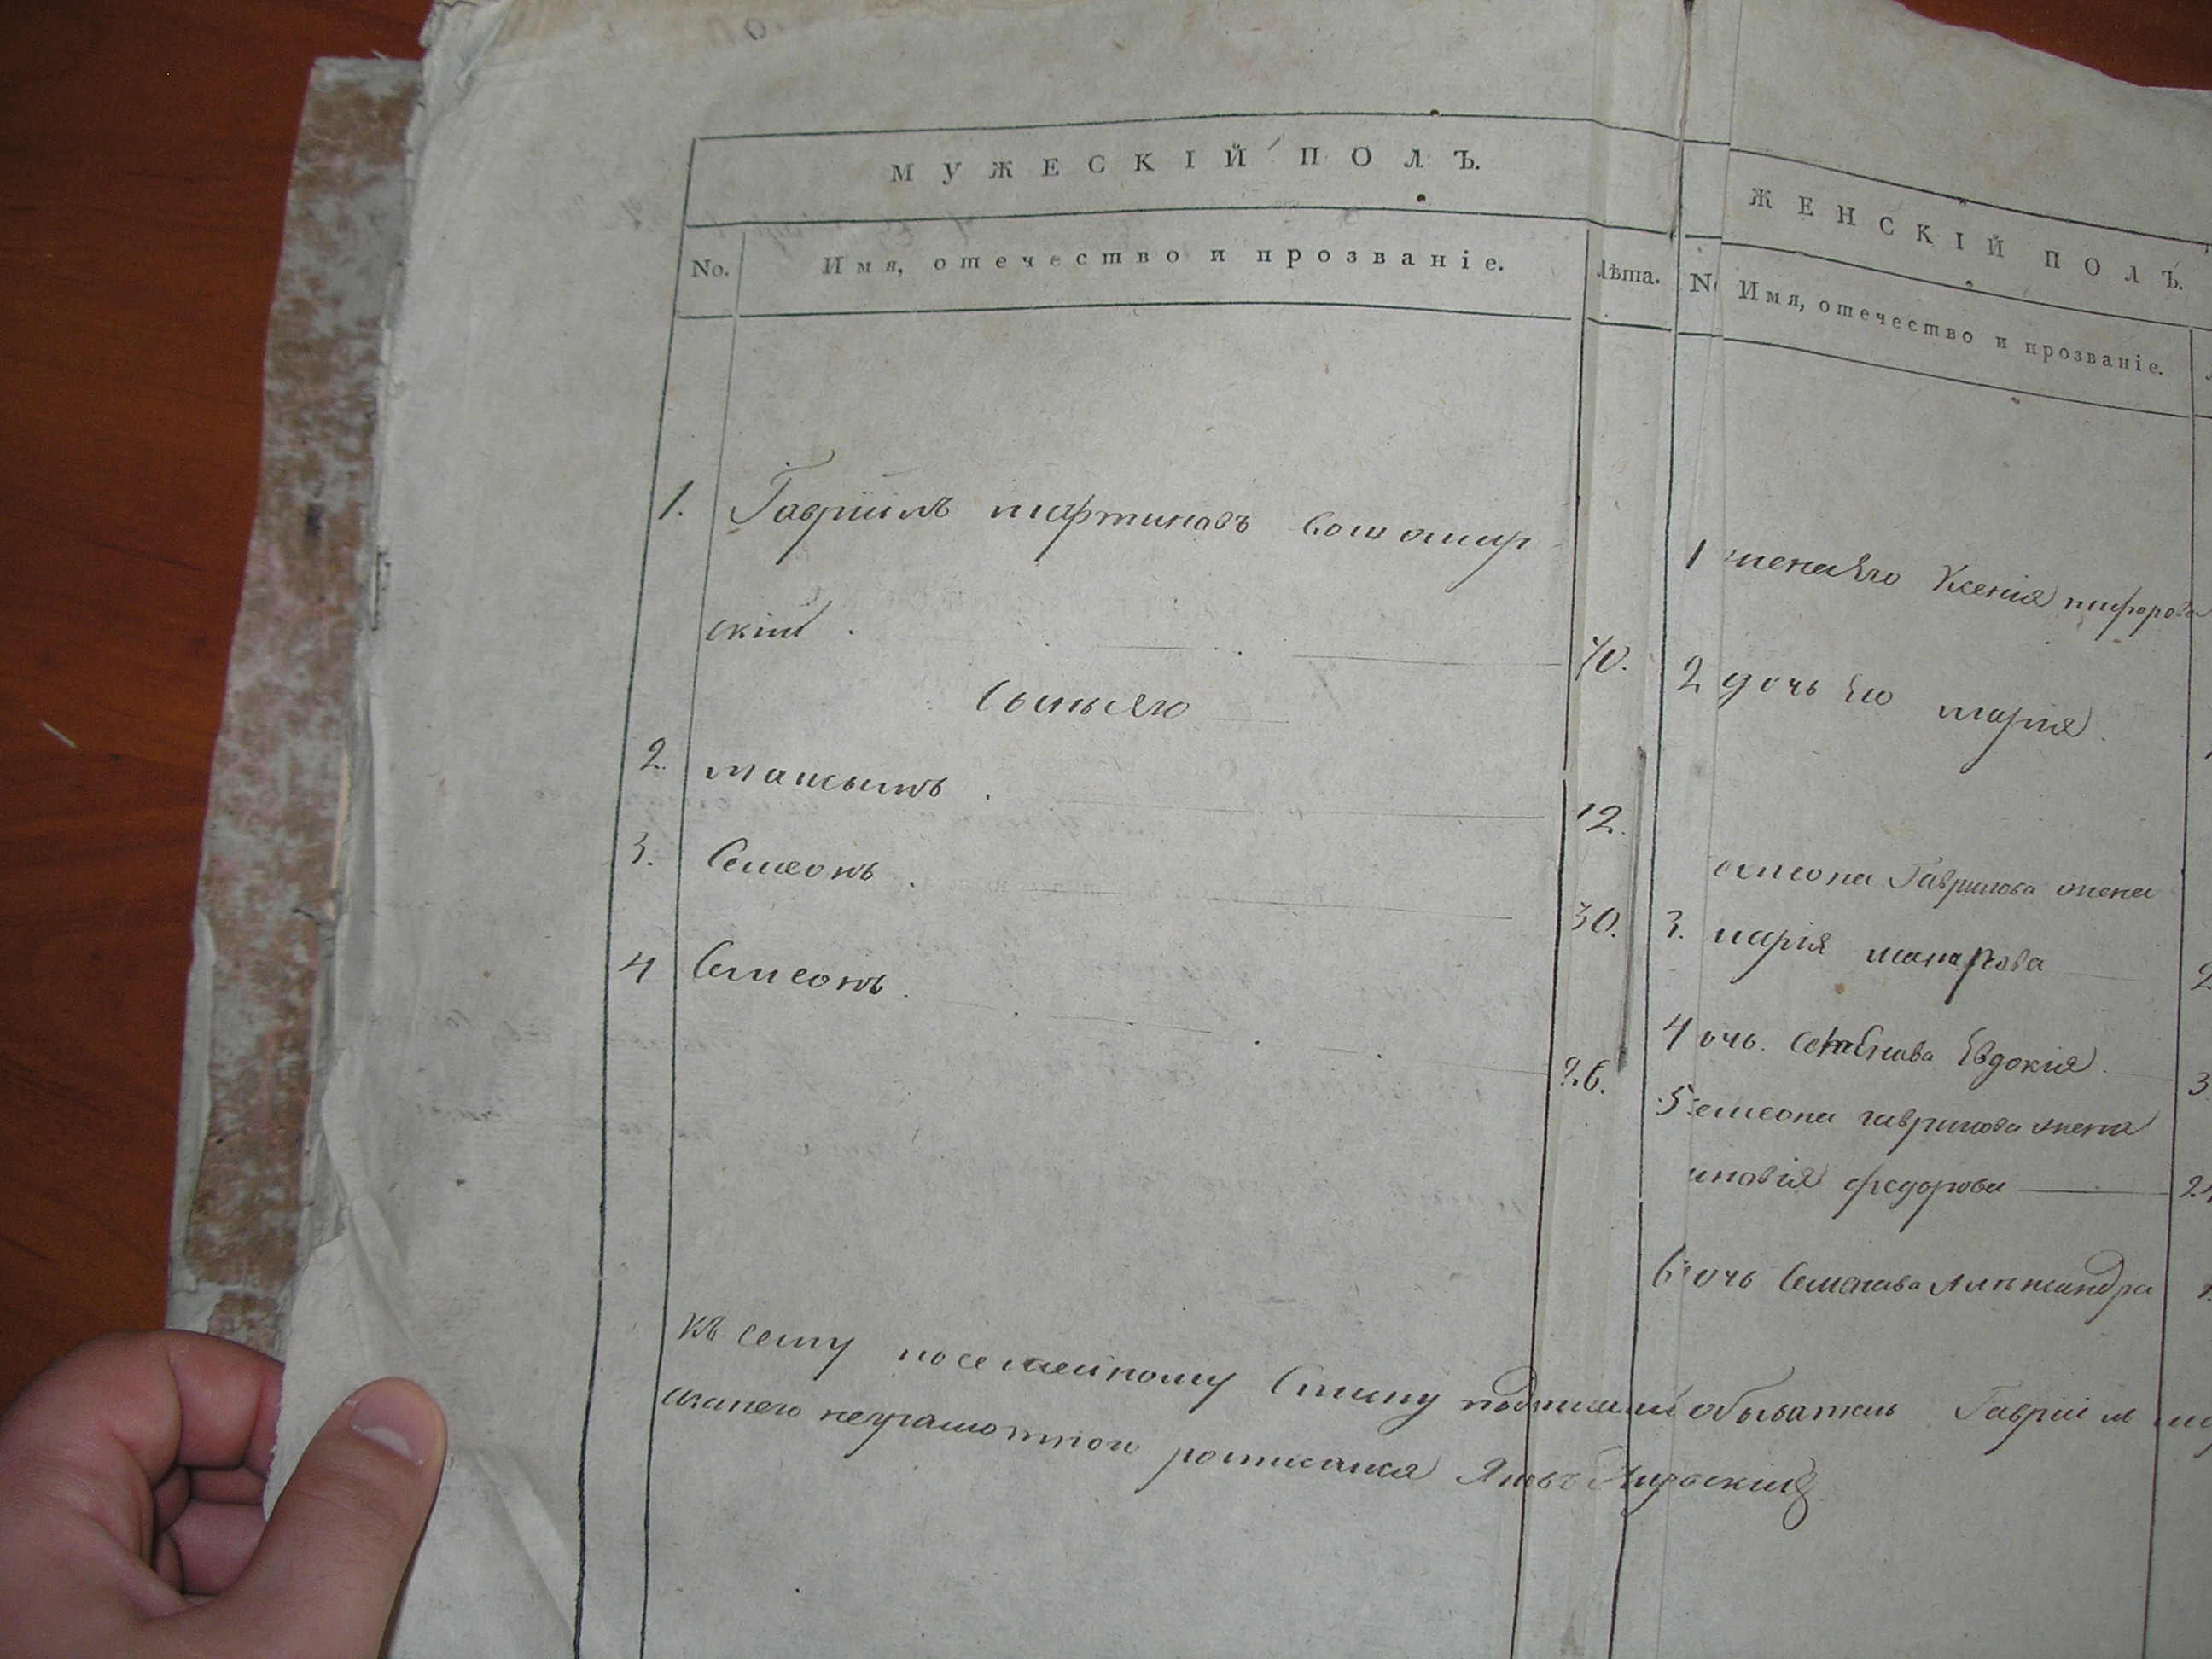 МУЖЕСКІЙ ПОЛЪ.
No. Имя, отечество и прозваніе. Лѣта.
1. Гавріилъ мартиновъ
скій . 40.
Сыны его
2. Максымъ . 12.
3. Семеонъ . 30.
4 Симеонъ . 26.
ЖЕНСКІЙ ПОЛЪ.
N Имя, отечество и прозваніе.
1 жена его Ксенія
2 дочь Его марія .
симеона Гаврилова жена
3. марія макарова 2
4 очь. Семенова Евдокія . 3
5 емеона гаврилова жена
иновія федорова 24
6 очь Семенова Александра 1
Къ сему посемейному Списку обыватель Гавріил
неграмотного росписался Яковъ